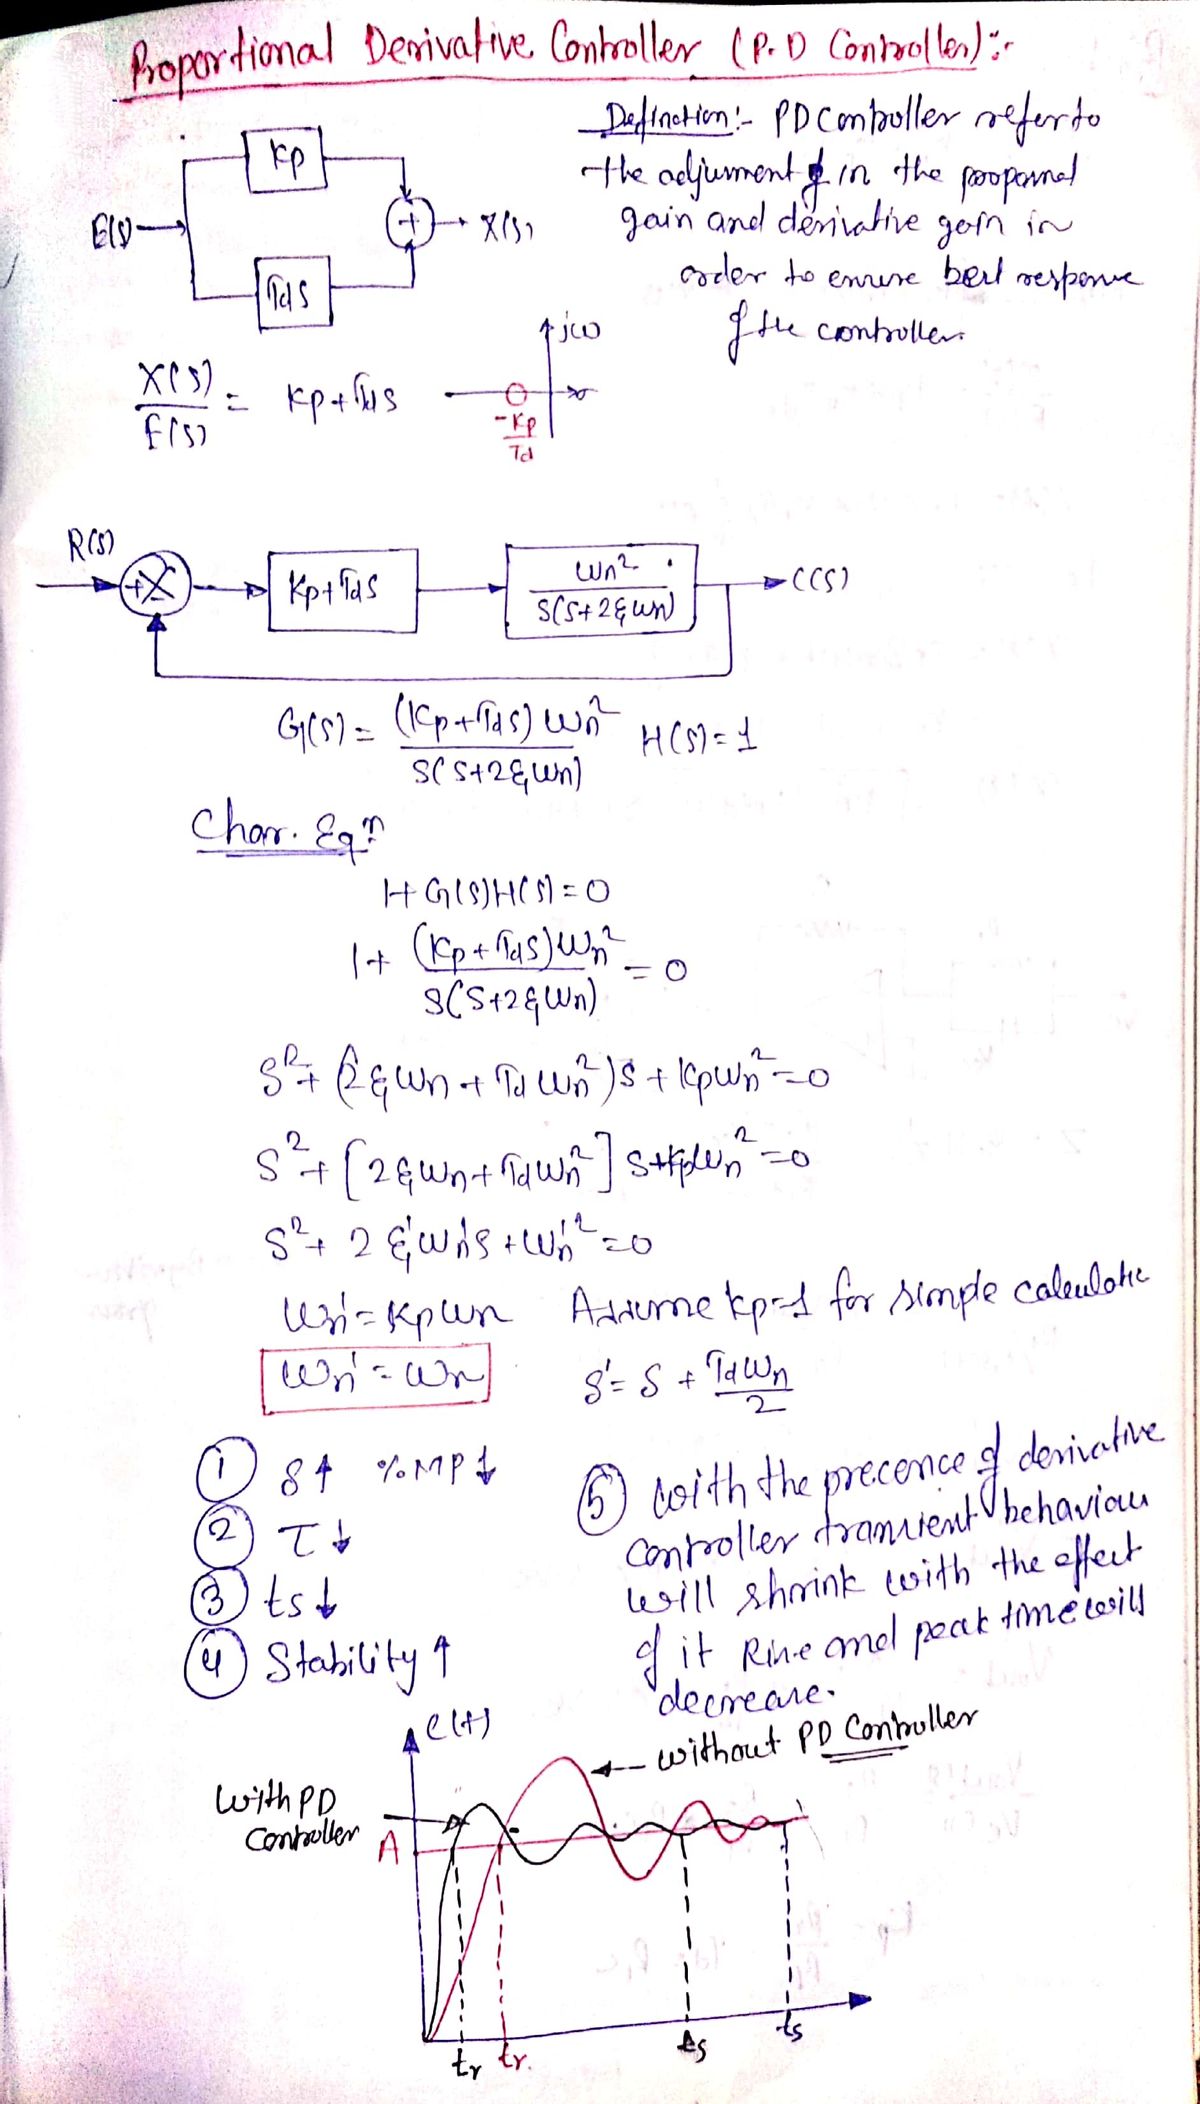 Proportional Derivative Controller (P.D Controller):-
Definction:- PD Controller refer to
the adjusment in the propornal
gain and derivative gain in
order to ensure best response
of the controller.
Kp
E(s)
+
X(s)
TdS
X(s)/E(s) = Kp+TdS
jω
σ
-Kp/Td
R(S)
+
-
Kp+TdS
ωn²/S(S+2ξωn)
C(S)
G(S) = (Kp+TdS)ωn²/S(S+2ξωn) H(S)=1
Char. Eqn
1+G(S)H(S)=0
1+ (Kp+TdS)ωn²/S(S+2ξωn) = 0
S²+(2ξωn+Tdωn²)S+Kpωn²=0
S²+[2ξωn+Tdωn²]S+Kpωn²=0
S²+2ξ'ωn'S+ωn'²=0
ωn'=Kpωn Assume Kp=1 for simple calculatie
ωn'=ωn
δ'=δ+Tdωn/2
① δ↑ %MP↓
② τ↓
③ ts↓
④ Stability↑
⑤ With the precence of derivative
controller transient behaviour
will shrink with the effect
of it Rise and peak time will
decrease.
C(t)
without PD Controller
With PD
Controller
A
tr
tr.
ts
ts